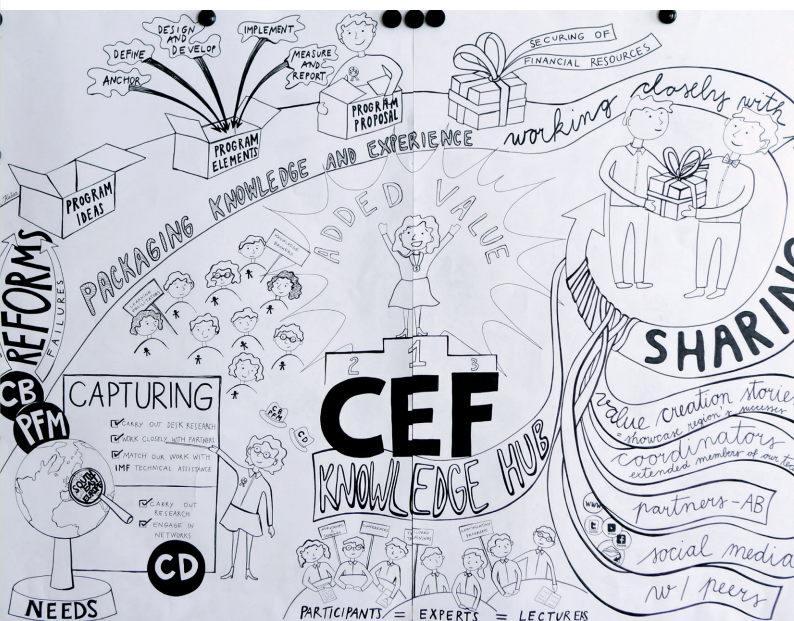 DESIGN
AND
DEVELOP
IMPLEMENT
DEFINE
MEASURE
AND
REPORT
ANCHOR
PROGRAM
IDEAS
PROGRAM
ELEMENTS
PROGRAM
PROPOSAL
SECURING OF
FINANCIAL RESOURCES
PACKAGING KNOWLEDGE AND EXPERIENCE
working closely with
ADDED VALUE
REFORMS
FAILURES
CB
PFM
SOUTH
EAST
EUROPE
NEEDS
CAPTURING
CARRY OUT DESK RESEARCH
WORK CLOSELY WITH PARTNERS
MATCH OUR WORK WITH
IMF TECHNICAL ASSISTANCE
CARRY OUT
RESEARCH
ENGAGE IN
NETWORKS
CD
CB
PFM
CD
2 1 3
CEF
KNOWLEDGE HUB
PARTICIPANTS = EXPERTS = LECTURERS
SHARIN
value creation stories
showcase region's successes
coordinators
extended members of our
partners-AB
www
social media
w/ peers